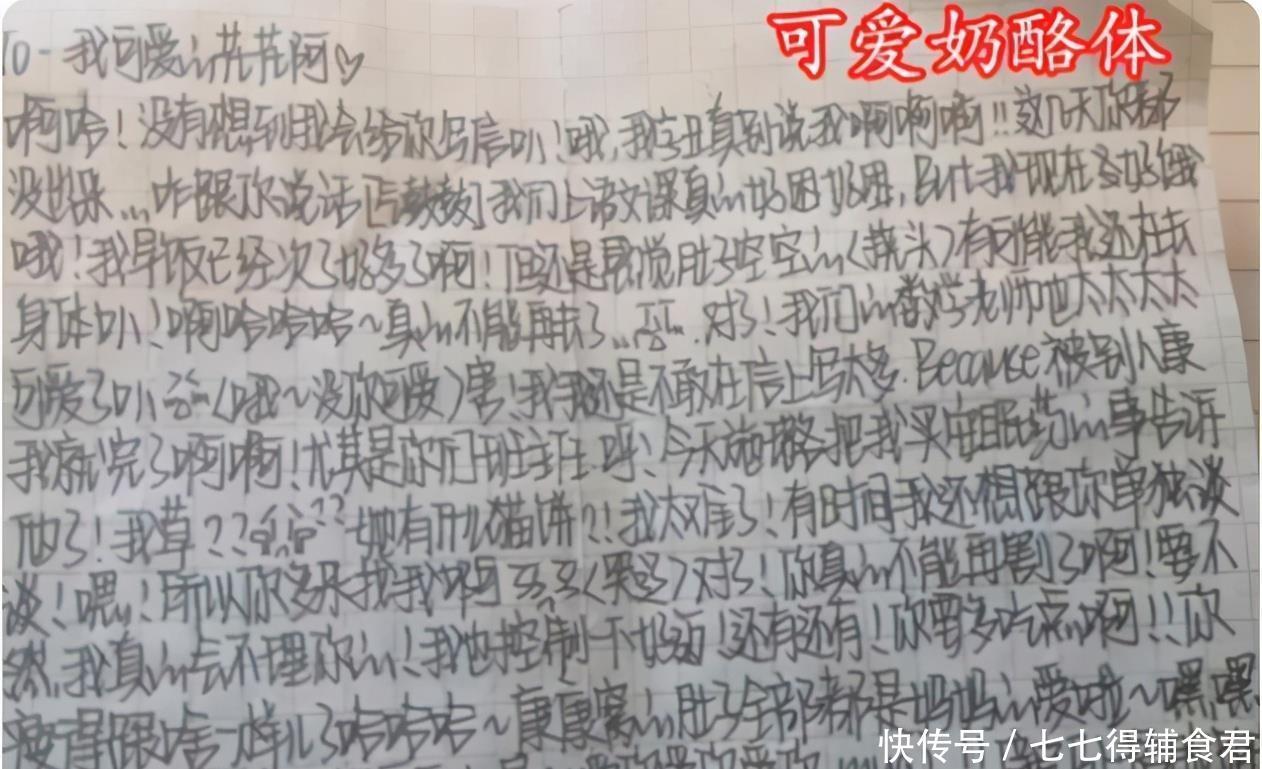 可爱奶酪体
TO - 我可爱in芃芃阿♡
啊哈！没有想到我会给你写信叭！哦，我字丑真别说我啊啊啊!!这几天你都
没跺...咋跟你说话[气鼓鼓]我们上语文课真in好困好困，But我现在又好饿
哦！我早饭已经次了好多了啊！但还是感觉肚子空空in(挠头)有可能我还在长
身体叭！啊哈哈哈～真in不能再长了...对了！我们in老师也太太太太
可爱了叭(哦～没你可爱)害！我还是不敢在信上写太多. Because被别人康
我就完了啊啊！尤其是你们班主任.呼！今天把我买安眠药in事告诉
他了！我草？？她有什么猫饼?！我太难了！有时间我还想跟你单独谈
谈！嗯！所以你多来找我啊(哭泣)对了！你真in不能再割了啊！要不
然，我真in会不理你in！我也控制一下！还有还有！你要多吃点啊!！你
瘦得跟啥一样儿了哈哈哈～康康窝in肚子全部都是妈妈in爱啦～嘿嘿
快传号/七七得辅食君